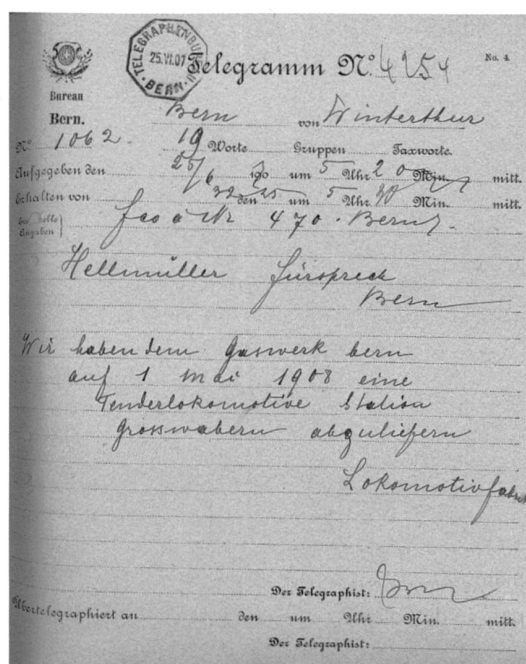 TELEGRAPHENBUREAU
25.VI.07
BERN
Telegramm No. 4254 No. 4.
Bureau
Bern. Bern von Winterthur
No 1062. 19 Worte Gruppen Taxworte.
Aufgegeben den 25/6 190 um 5 Uhr 20 Min. mitt.
Erhalten von den 25 um 5 Uhr 30 Min. mitt.
Angaben 470 Bern
Hellmüller Fürsprech
Bern
Wir haben dem Gaswerk bern
auf 1 mai 1908 eine
Tenderlokomotive Station
Grosswabern abzuliefern
Lokomotivfabrik
Der Telegraphist:
Übertelegraphiert an den um Uhr Min. mitt.
Der Telegraphist: